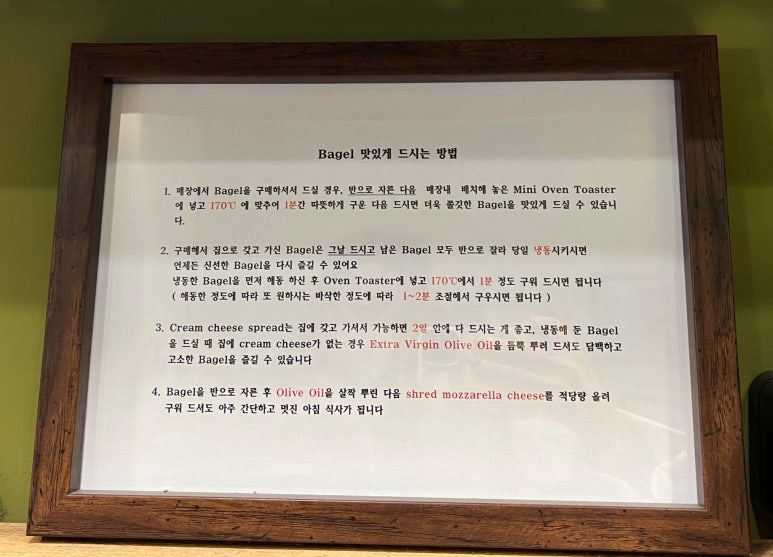 Bagel 맛있게 드시는 방법
1. 매장에서 Bagel을 구매하셔서 드실 경우, 반으로 자른 다음 매장내 배치해 놓은 Mini Oven Toaster
에 넣고 170℃ 에 맞추어 1분간 따뜻하게 구운 다음 드시면 더욱 쫄깃한 Bagel을 맛있게 드실 수 있습니
다.
2. 구매해서 집으로 갖고 가신 Bagel은 그날 드시고 남은 Bagel 모두 반으로 잘라 당일 냉동시키시면
언제든 신선한 Bagel을 다시 즐길 수 있어요
냉동한 Bagel을 먼저 해동 하신 후 Oven Toaster에 넣고 170℃에서 1분 정도 구워 드시면 됩니다
( 해동한 정도에 따라 또 원하시는 바삭한 정도에 따라 1~2분 조절해서 구우시면 됩니다 )
3. Cream cheese spread는 집에 갖고 가셔서 가능하면 2일 안에 다 드시는 게 좋고, 냉동해 둔 Bagel
을 드실 때 집에 cream cheese가 없는 경우 Extra Virgin Olive Oil을 듬뿍 뿌려 드셔도 담백하고
고소한 Bagel을 즐길 수 있습니다
4. Bagel을 반으로 자른 후 Olive Oil을 살짝 뿌린 다음 shred mozzarella cheese를 적당량 올려
구워 드셔도 아주 간단하고 멋진 아침 식사가 됩니다